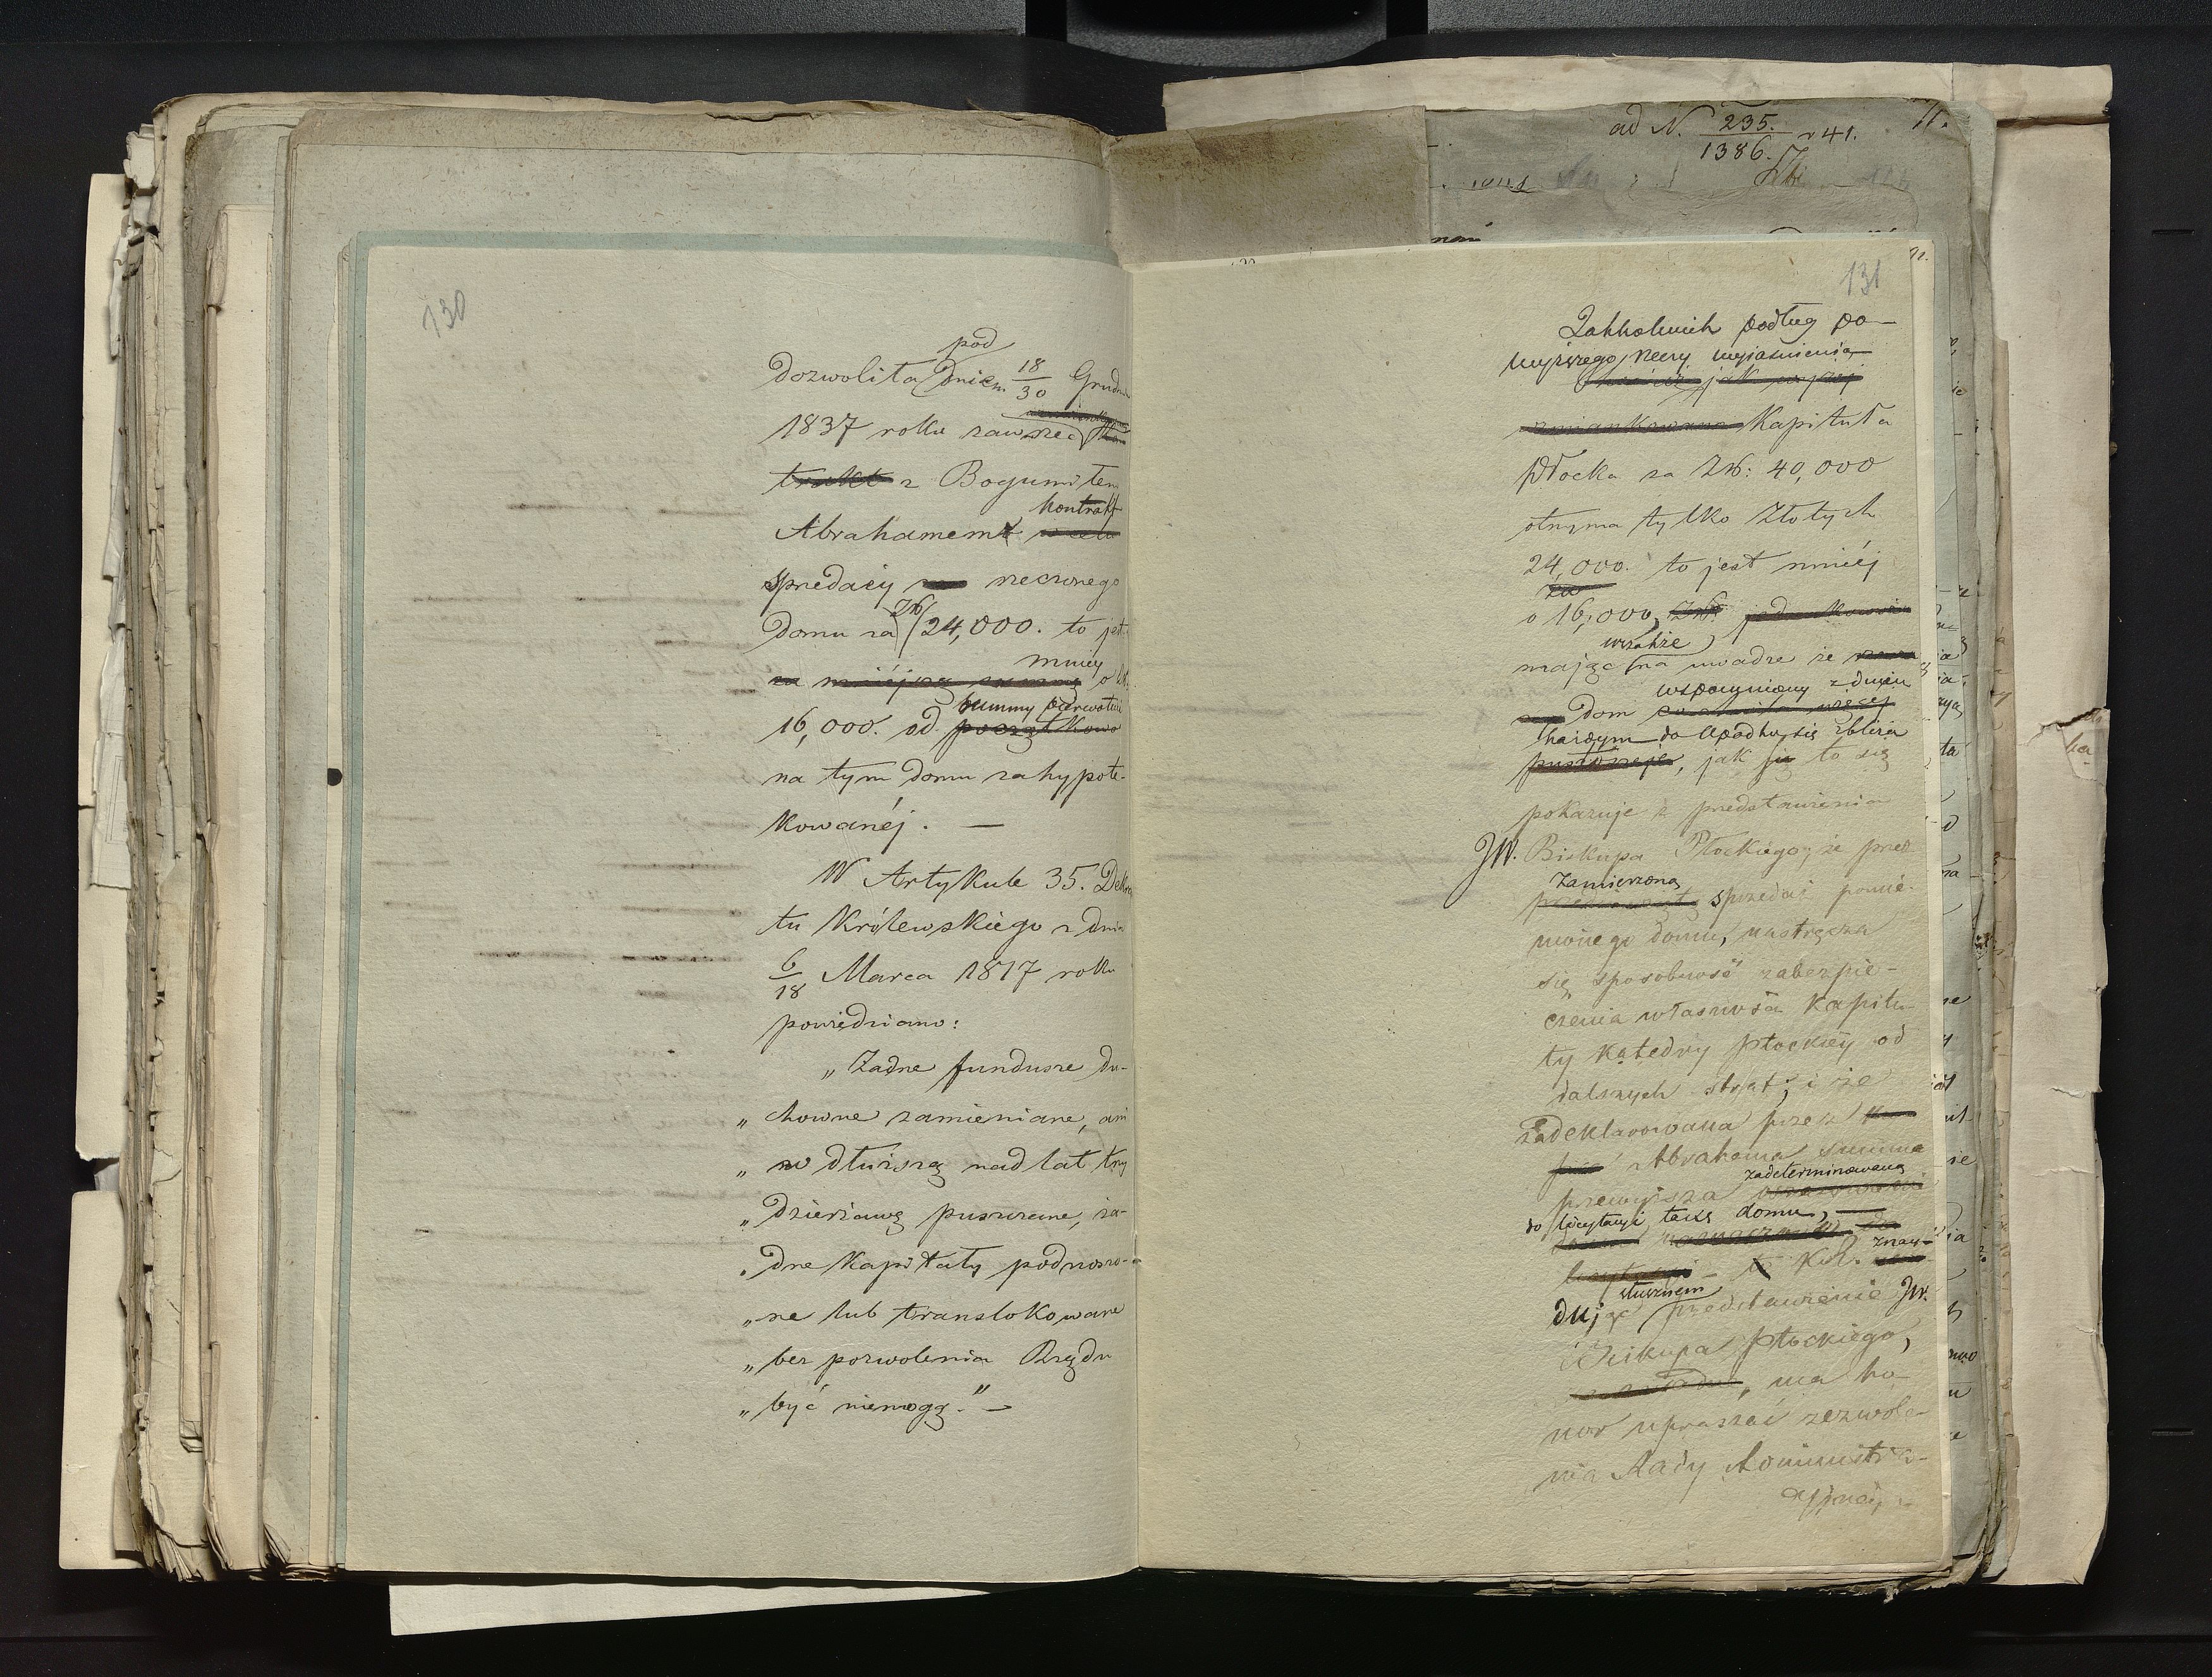 130
pod
dozwoliła dniem 18/30 Grudn
1837 roku zawrzeć
trakt z Bogumiłem
kontrakt
Abrahamem w celu
sprzedaży rzeczonego
Zł
domu za 24,000. to jest
mniéj
za mniéjszą summę o Zł.
summy pierwotnie
16,000. od początkowo
na tym domu zahypote-
kowanéj. —
W Artykule 35. Dekre
tu Królewskiego z dnia
6/18 Marca 1817 roku
powiedziano:
„Żadne fundusze du-
„chowne zamieniane, ani
„w dłuższą nad lat trzy
„dzierżawę puszczane, ża-
„dne kapitały podnoszo-
„ne lub translokowane
„bez pozwolenia Rządu
„być niemogą." —
ad N. 235./1386. r 41.
11.
131
Jakkolwiek podług po-
wyższego rzeczy wyjaśnienia
jak wyżej
wzmiankowana Kapituła
Płocka za Zł: 40,000
otrzyma tylko Złotych
24,000. to jest mniéj
za
o 16,000, Zł: jednakowoż
wszakże
mając na uwadze że
wspomniony z dniem
dom coraz więcej
każdym do upadku się zbliża
pustoszeje, jak się to się
pokazuje z przedstawienia
JW. Biskupa Płockiego, że przez
zamierzoną
sprzedaż pomie-
nionego domu, nastręcza
się sposobność zabezpie-
czenia własności Kapitu-
ły Katedry Płockiéj od
dalszych strat; i że
zadeklarowana przez
Abrahama summa
zadeterminowaną
przewyższa
do licytacyi taxę domu, —
licytacyi — K.R. znaj-
słusznem
dując przedstawienie JW.
Biskupa Płockiego,
ma ho-
nor upraszać zezwole-
nia Rady Administra-
cyjnej